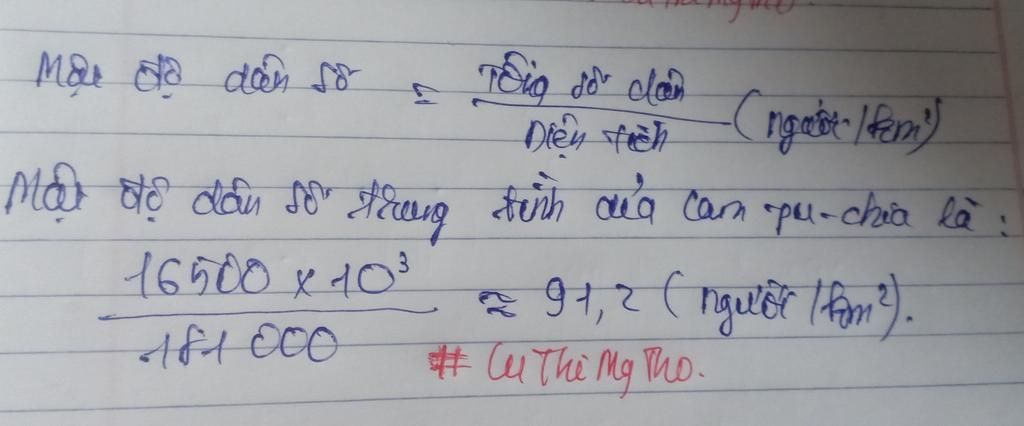 Mật độ dân số = Tổng số dân / Diện tích (người/km²)
Mật độ dân số trung bình của Cam-pu-chia là:
16500 x 10³ / 181 000 ≈ 91,2 (người/km²).
# CuThiMgTho.